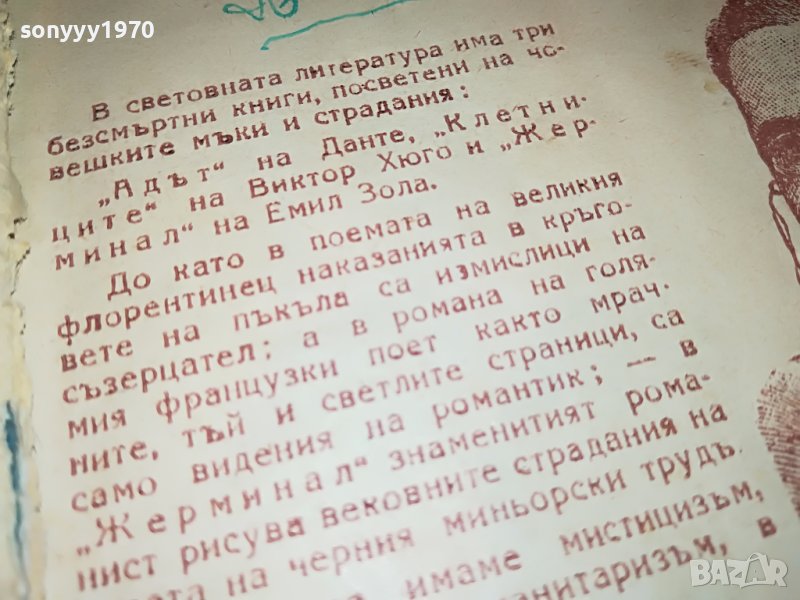 sonyyy1970
В световната литература има три
безсмъртни книги, посветени на чо-
вешките мъки и страдания:
„Адът“ на Данте, „Клетни-
ците“ на Виктор Хюго и „Жер-
минал“ на Емил Зола.
До като в поемата на великия
флорентинец наказанията в кръго-
вете на пъкъла са измислици на
съзерцател; а в романа на голя-
мия французки поет както мрач-
ните, тъй и светлите страници, са
само видения на романтик; — в
„Жерминал“ знаменитият рома-
нист рисува вековните страдания на
на черния миньорски трудъ.
имаме мистицизъм,
в
BAZAR